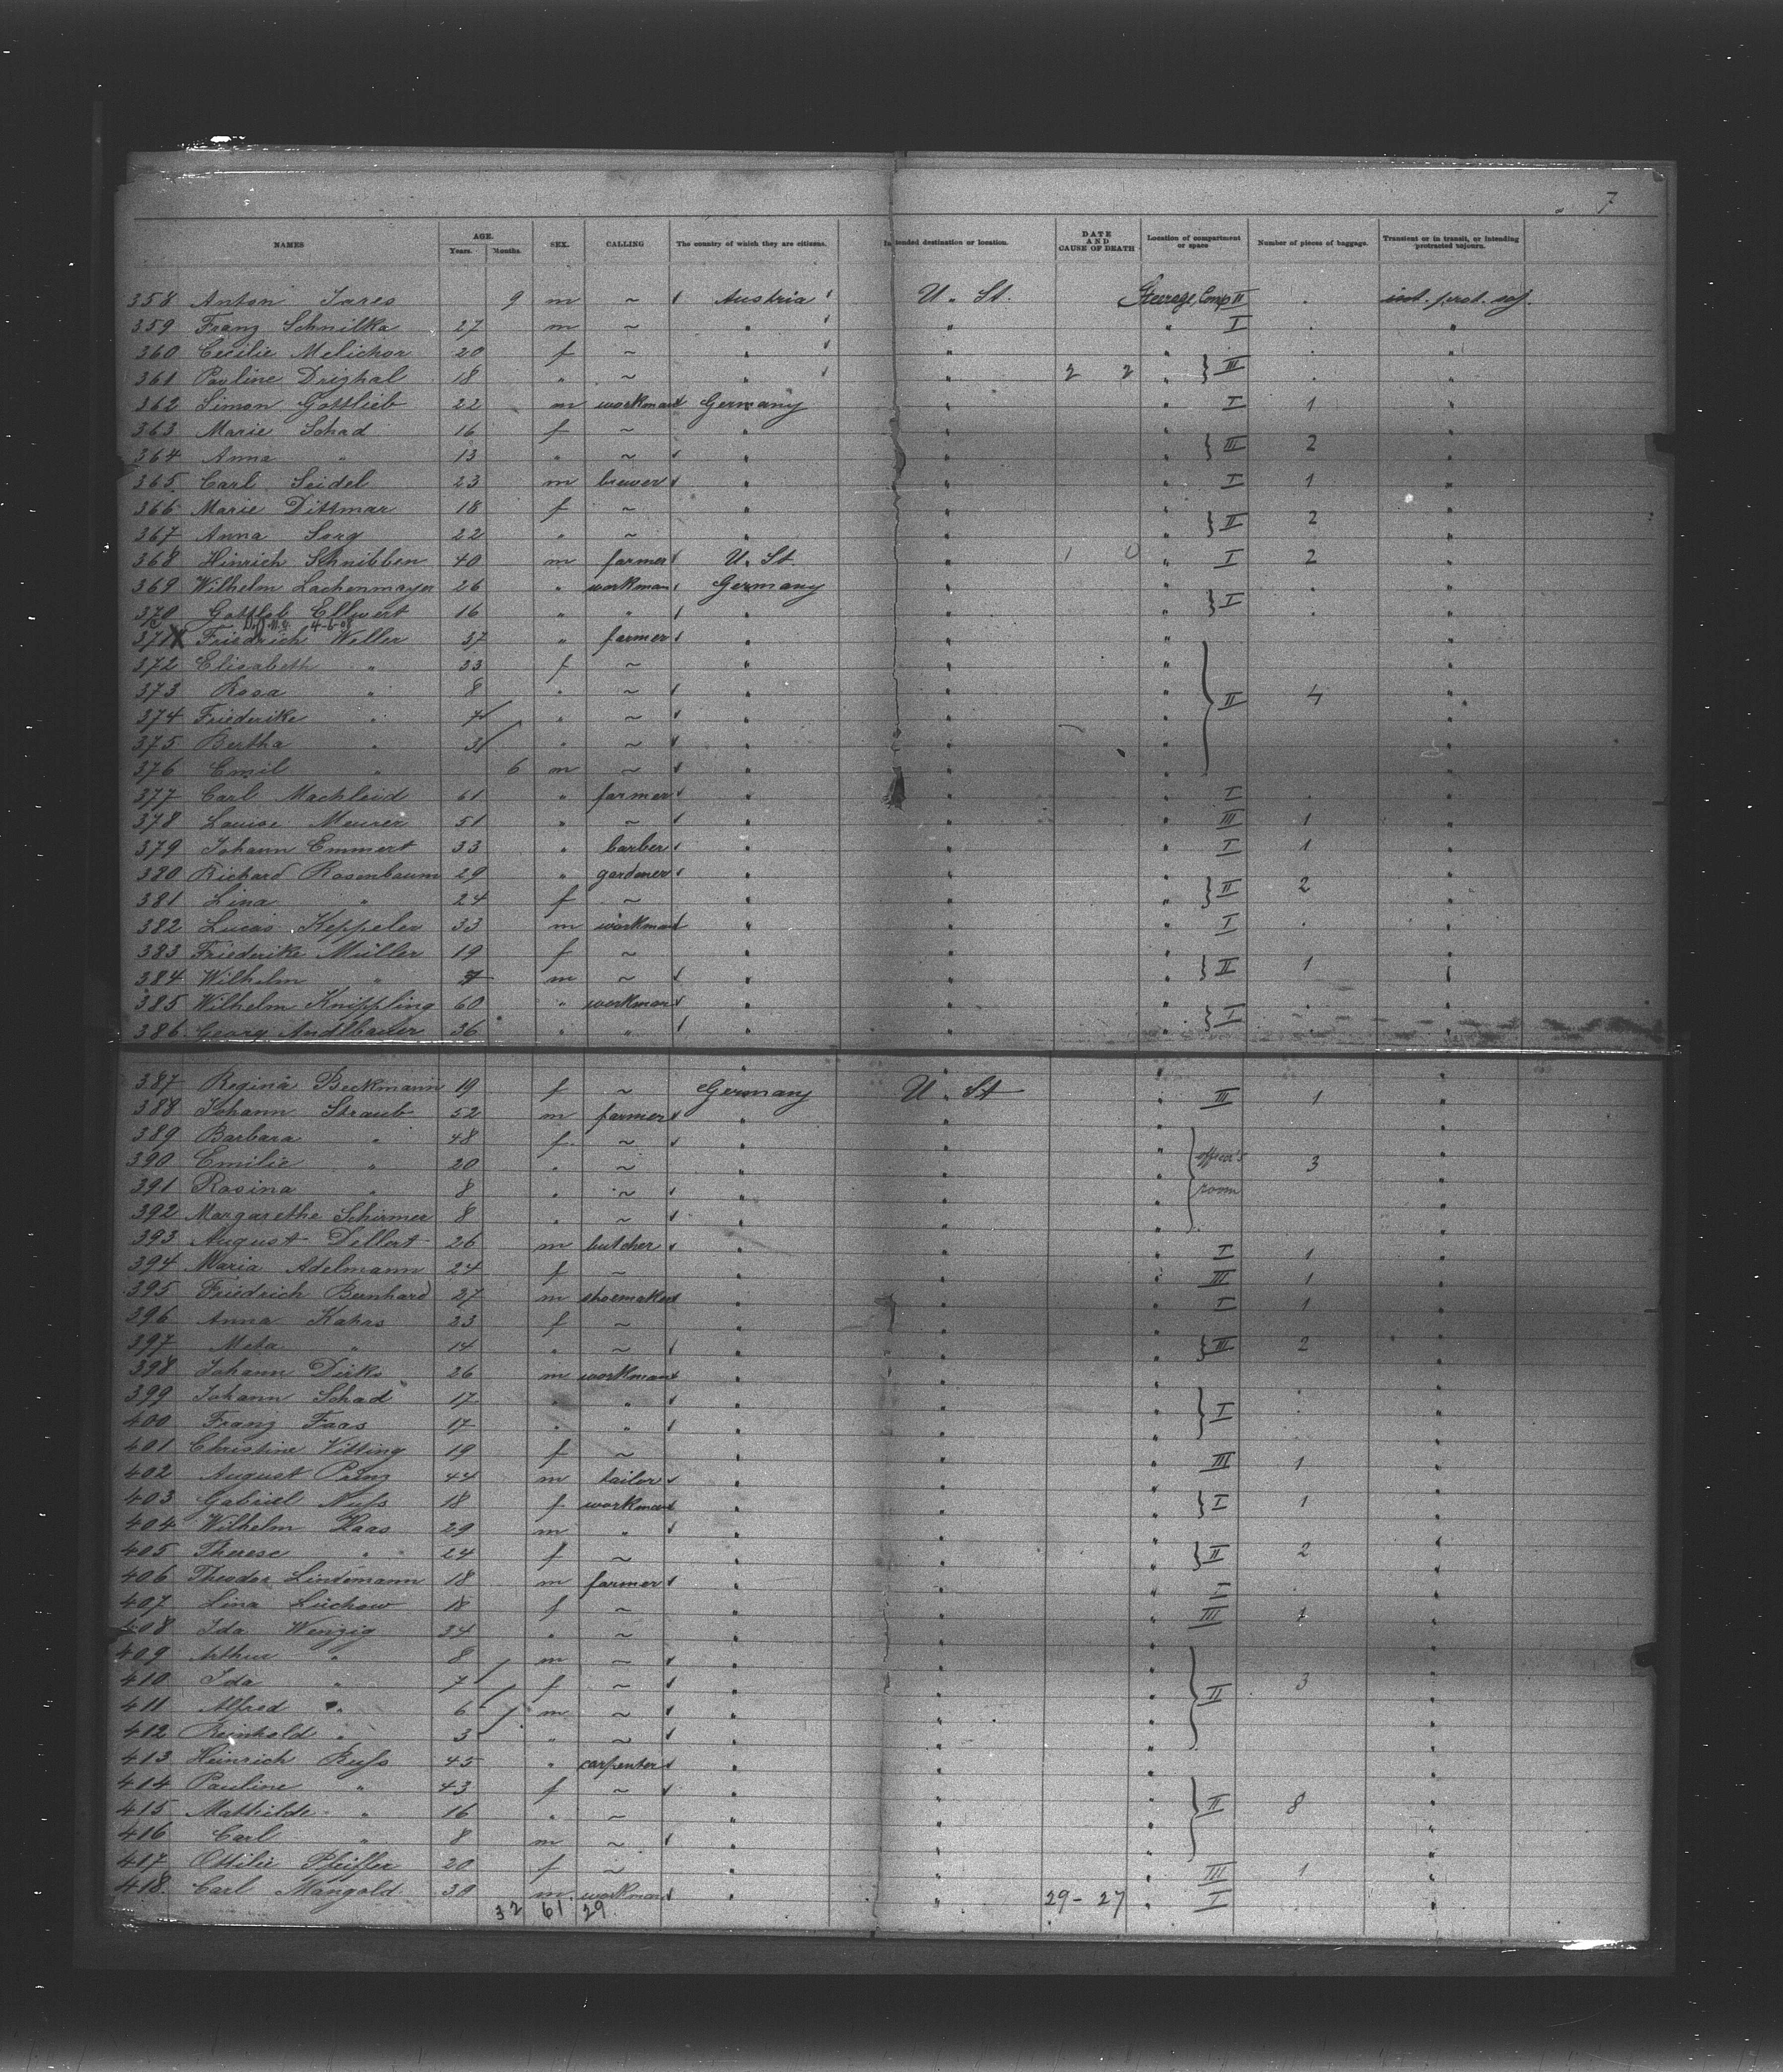 7
NAMES AGE. Years. Months. SEX. CALLING The country of which they are citizens. Intended destination or location. DATE AND CAUSE OF DEATH Location of compartment or space Number of pieces of baggage. Transient or in transit, or intending protracted sojourn.
358 Anton Jares 9 m ~ Austria U. St. Steerage, Comp II . int. prot. soj.
359 Franz Schnilka 27 m ~ " " " I . "
360 Cecilie Melichor 20 f ~ " " " . "
361 Pauline Drizhal 18 " ~ " " 2 2 " } III . "
362 Simon Gottlieb 22 m workman Germany " " I 1 "
363 Marie Schad 16 f ~ " " "
364 Anna " 13 " ~ " " " } III 2 "
365 Carl Seidel 23 m brewer " " " I 1 "
366 Marie Dittmar 18 f ~ " " " "
367 Anna Sorg 22 " ~ " " " } II 2 "
368 Hinrich Schnibben 40 m farmer U. St. " 1 0 " I 2 "
369 Wilhelm Lachenmayer 26 " workman Germany " " . "
370 Gottlob Ellwert 16 " " " " " } I . "
371 X Friedrich Weller 37 " farmer " " " "
372 Elisabeth " 33 f ~ " " " "
373 Rosa " 8 " ~ " " " } II 4 "
374 Friederike " 7 " ~ " " " "
375 Bertha " 3 " ~ " " " "
376 Emil " 6 m ~ " " " "
377 Carl Machleid 61 " farmer " " " I . "
378 Louise Meurer 51 " ~ " " " III 1 "
379 Johann Emmert 33 " barber " " " I 1 "
380 Richard Rosenbaum 29 " gardener " " " "
381 Lina " 24 f ~ " " " } II 2 "
382 Lucas Keppeler 33 m workman " " " I . "
383 Friederike Müller 19 f ~ " " " "
384 Wilhelm " m ~ " " " } II 1 "
385 Wilhelm Knippling 60 " workman " " " . "
386 Georg Andlbauer 36 " " " " " } I . "
387 Regina Beckmann 19 f ~ Germany U. St " III 1 "
388 Johann Straub 52 m farmer " " " "
389 Barbara " 48 f ~ " " " "
390 Emilie " 20 " ~ " " " } officer's 3 "
391 Rosina " 8 " ~ " " " room "
392 Margarethe Schirmer 8 " ~ " " " "
393 August Dellert 26 m butcher " " " I 1 "
394 Maria Adelmann 24 f ~ " " " III 1 "
395 Friedrich Bernhard 27 m shoemaker " " " I 1 "
396 Anna Kahrs 23 f ~ " " " "
397 Meta " 14 " ~ " " " } III 2 "
398 Johann Dirks 26 m workman " " " "
399 Johann Schad 17 " " " " " } I . "
400 Franz Faas 17 " " " " " . "
401 Christine Vitting 19 f ~ " " " III 1 "
402 August Prinz 44 m tailor " " " "
403 Gabriel Nuss 18 f workman " " " } I 1 "
404 Wilhelm Haas 29 m " " " " "
405 Therese " 24 f ~ " " " } II 2 "
406 Theodor Lindemann 18 m farmer " " " I . "
407 Lina Lüchow 18 f ~ " " " III 1 "
408 Ida Wenzig 34 " ~ " " " "
409 Arthur " 8 m ~ " " " "
410 Ida " 7 f ~ " " " } II 3 "
411 Alfred " 6 m ~ " " " "
412 Reinhold " 3 " ~ " " " "
413 Heinrich Russ 45 " carpenter " " " "
414 Pauline " 43 f ~ " " " "
415 Mathilde " 16 " ~ " " " } II 8 "
416 Carl " 8 m ~ " " " "
417 Ottilie Pfeiffer 20 f ~ " " " III 1 "
418 Carl Mangold 30 m workman " " 29 - 27 " I . "
32 61 29